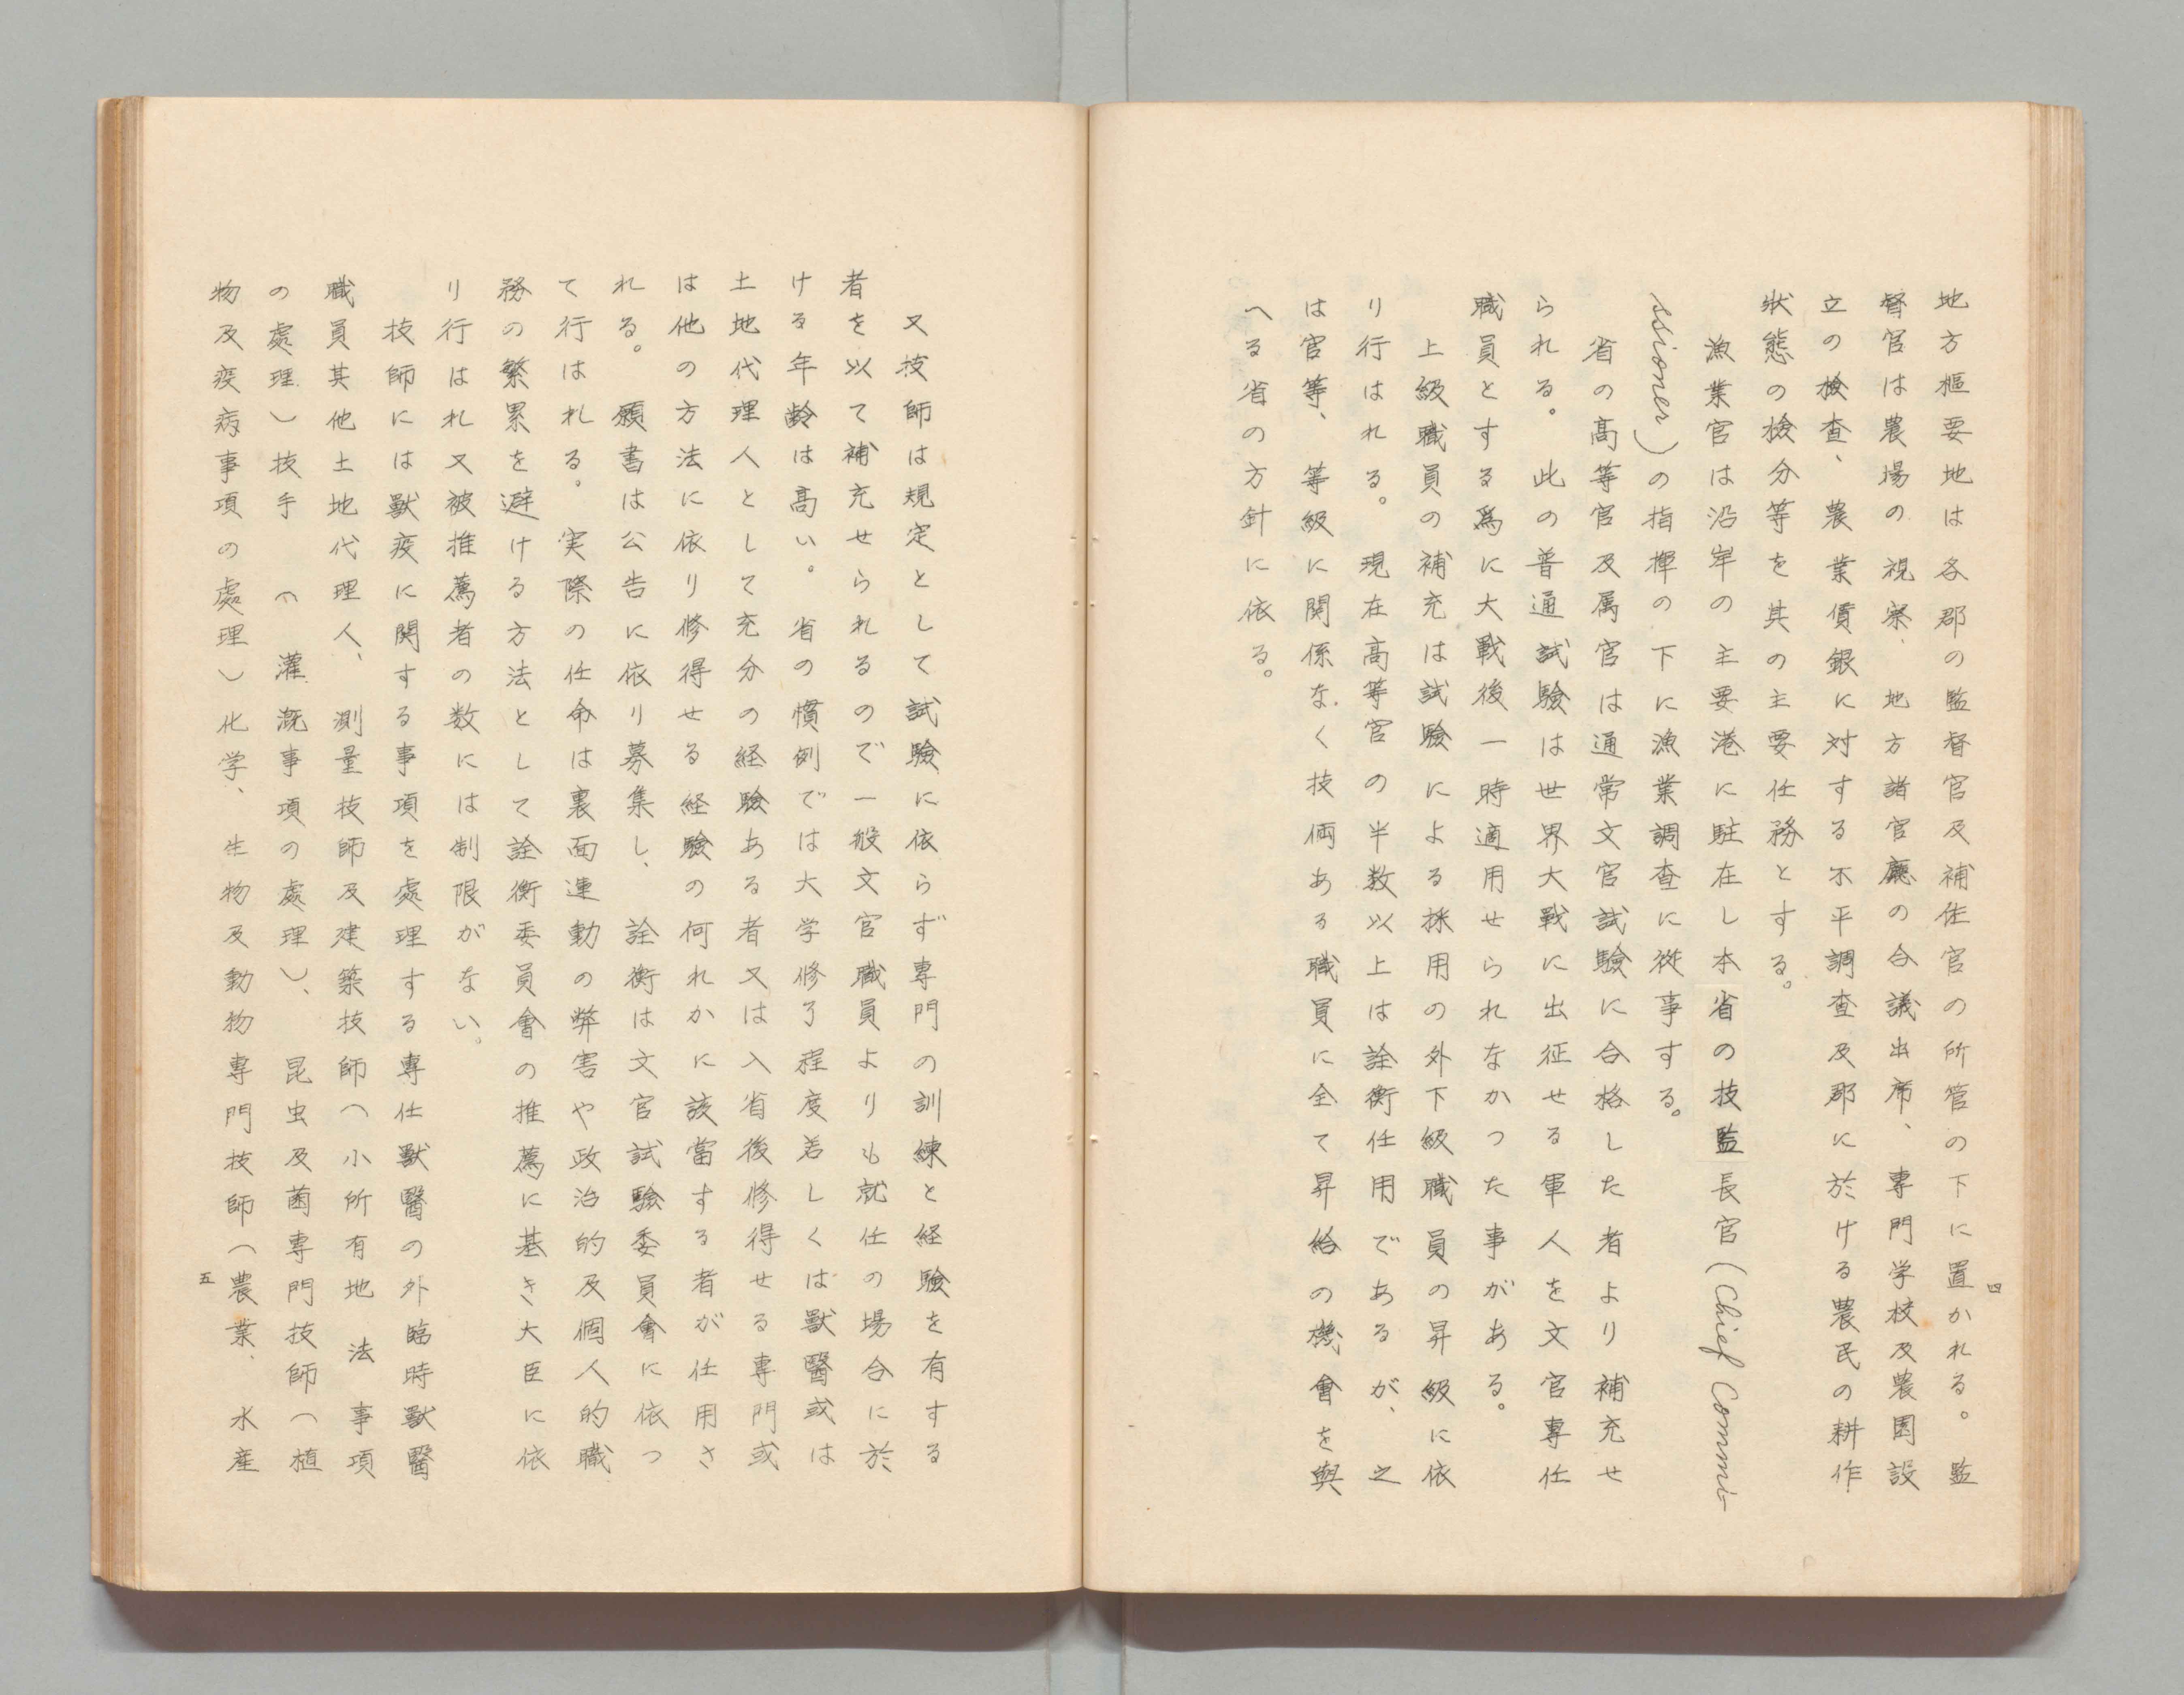 地方枢要地は各郡の監督官及補佐官の所管の下に置かれる。監
督官は農場の視察、地方諸官廳の合議出席、専門学校及農園設
立の檢査、農業賃銀に対する不平調査及郡に於ける農民の耕作
状態の檢分等を其の主要任務とする。
漁業官は沿岸の主要港に駐在し本省の技監長官(Chief Commi-
ssioner)の指揮の下に漁業調査に從事する。
省の高等官及属官は通常文官試驗に合格した者より補充せ
られる。此の普通試驗は世界大戦に出征せる軍人を文官專任
職員とする爲に大戰後一時適用せられなかつた事がある。
上級職員の補充は試驗による採用の外下級職員の昇級に依
り行はれる。現在高等官の半数以上は詮衡任用であるが、之
は官等、等級に関係なく技倆ある職員に全て昇給の機會を與
へる省の方針に依る。
四
又技師は規定として試驗に依らず専門の訓練と経驗を有する
者を以て補充せられるので一般文官職員よりも就任の場合に於
ける年齡は高い。省の慣例では大学修了程度若しくは獸醫或は
土地代理人として充分の経驗ある者又は入省後修得せる専門或
は他の方法に依り修得せる経驗の何れかに該當する者が任用さ
れる。願書は公告に依り募集し、詮衡は文官試驗委員會に依つ
て行はれる。実際の任命は裏面運動の弊害や政治的及個人的職
務の繁累を避ける方法として詮衡委員會の推薦に基き大臣に依
り行はれ又被推薦者の数には制限がない。
技師には獸疫に関する事項を處理する專任獸醫の外臨時獸醫
職員其他土地代理人、測量技師及建築技師(小所有地法事項
の處理)技手(灌漑事項の處理)、昆虫及菌専門技師(植
物及疫病事項の處理)化学、生物及動物専門技師(農業、水産
五